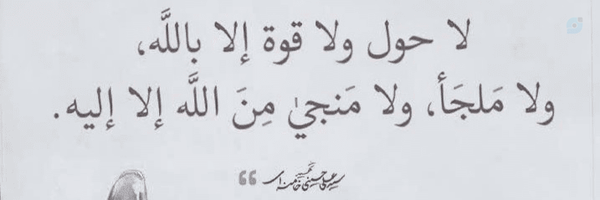 لا حول ولا قوة إلا باللَّه،
ولا مَلجَأ، ولا مَنجىٰ مِنَ اللَّه إلا إليه.